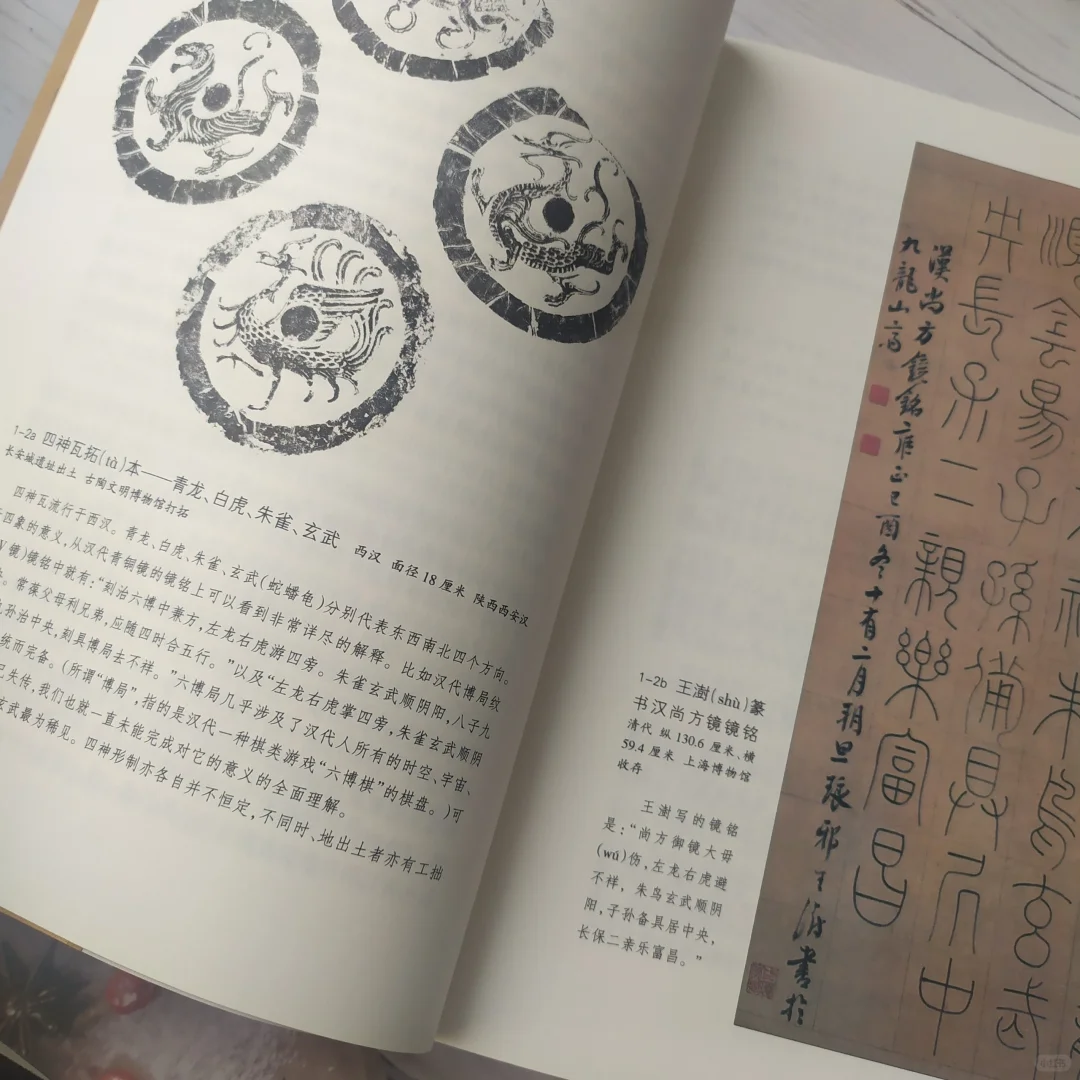 1-2a 四神瓦拓(tà)本——青龙、白虎、朱雀、玄武 西汉 面径18厘米 陕西西安汉
长安城遗址出土 古陶文明博物馆打拓
四神瓦流行于西汉。青龙、白虎、朱雀、玄武(蛇蟠龟)分别代表东西南北四个方向。
四象的意义,从汉代青铜镜的镜铭上可以看到非常详尽的解释。比如汉代博局纹
V镜)镜铭中就有:“刻治六博中兼方,左龙右虎游四旁。朱雀玄武顺阴阳,八子九
。常葆父母利兄弟,应随四时合五行。”以及“左龙右虎掌四旁,朱雀玄武顺阴
孙治中央,刻具博局去不祥。”六博局几乎涉及了汉代人所有的时空、宇宙、
统而完备。(所谓“博局”,指的是汉代一种棋类游戏“六博棋”的棋盘。)可
已失传,我们也就一直未能完成对它的意义的全面理解。
玄武最为稀见。四神形制亦各自并不恒定,不同时、地出土者亦有工拙
1-2b 王澍(shù)篆
书汉尚方镜镜铭
清代 纵130.6厘米、横
59.4厘米 上海博物馆
收存
王澍写的镜铭
是:“尚方御镜大毋
(wú)伤,左龙右虎避
不祥,朱鸟玄武顺阴
阳,子孙备具居中央,
长保二亲乐富昌。”
朱鳥玄武
順陰昜子孫備具居中
央長保二親樂富昌
漢尚方鏡銘 雍正己酉冬十有二月朔旦琅邪王澍書於
九龍山齋